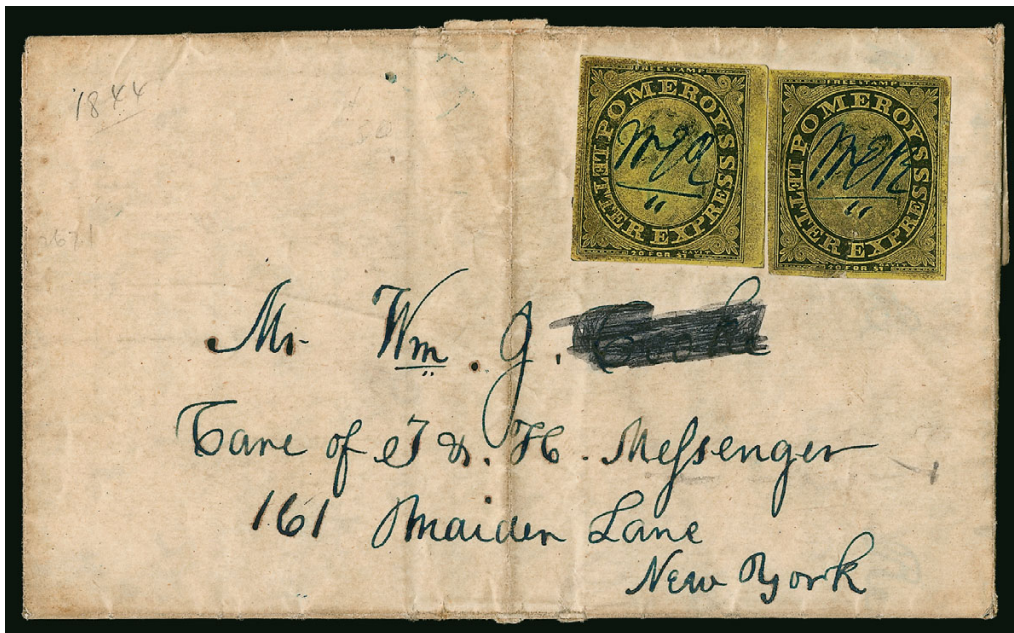 1844
FREE STAMP
POMEROY'S LETTER EXPRESS
20 FOR $1
FREE STAMP
POMEROY'S LETTER EXPRESS
20 FOR $1
Mr. Wm. J.
Care of T & H. Messenger
161 Maiden Lane
New York